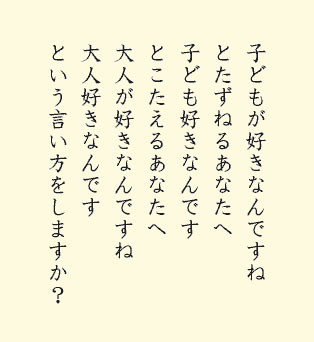 子どもが好きなんですね
とたずねるあなたへ
子ども好きなんです
とこたえるあなたへ
大人が好きなんですね
大人好きなんです
という言い方をしますか？